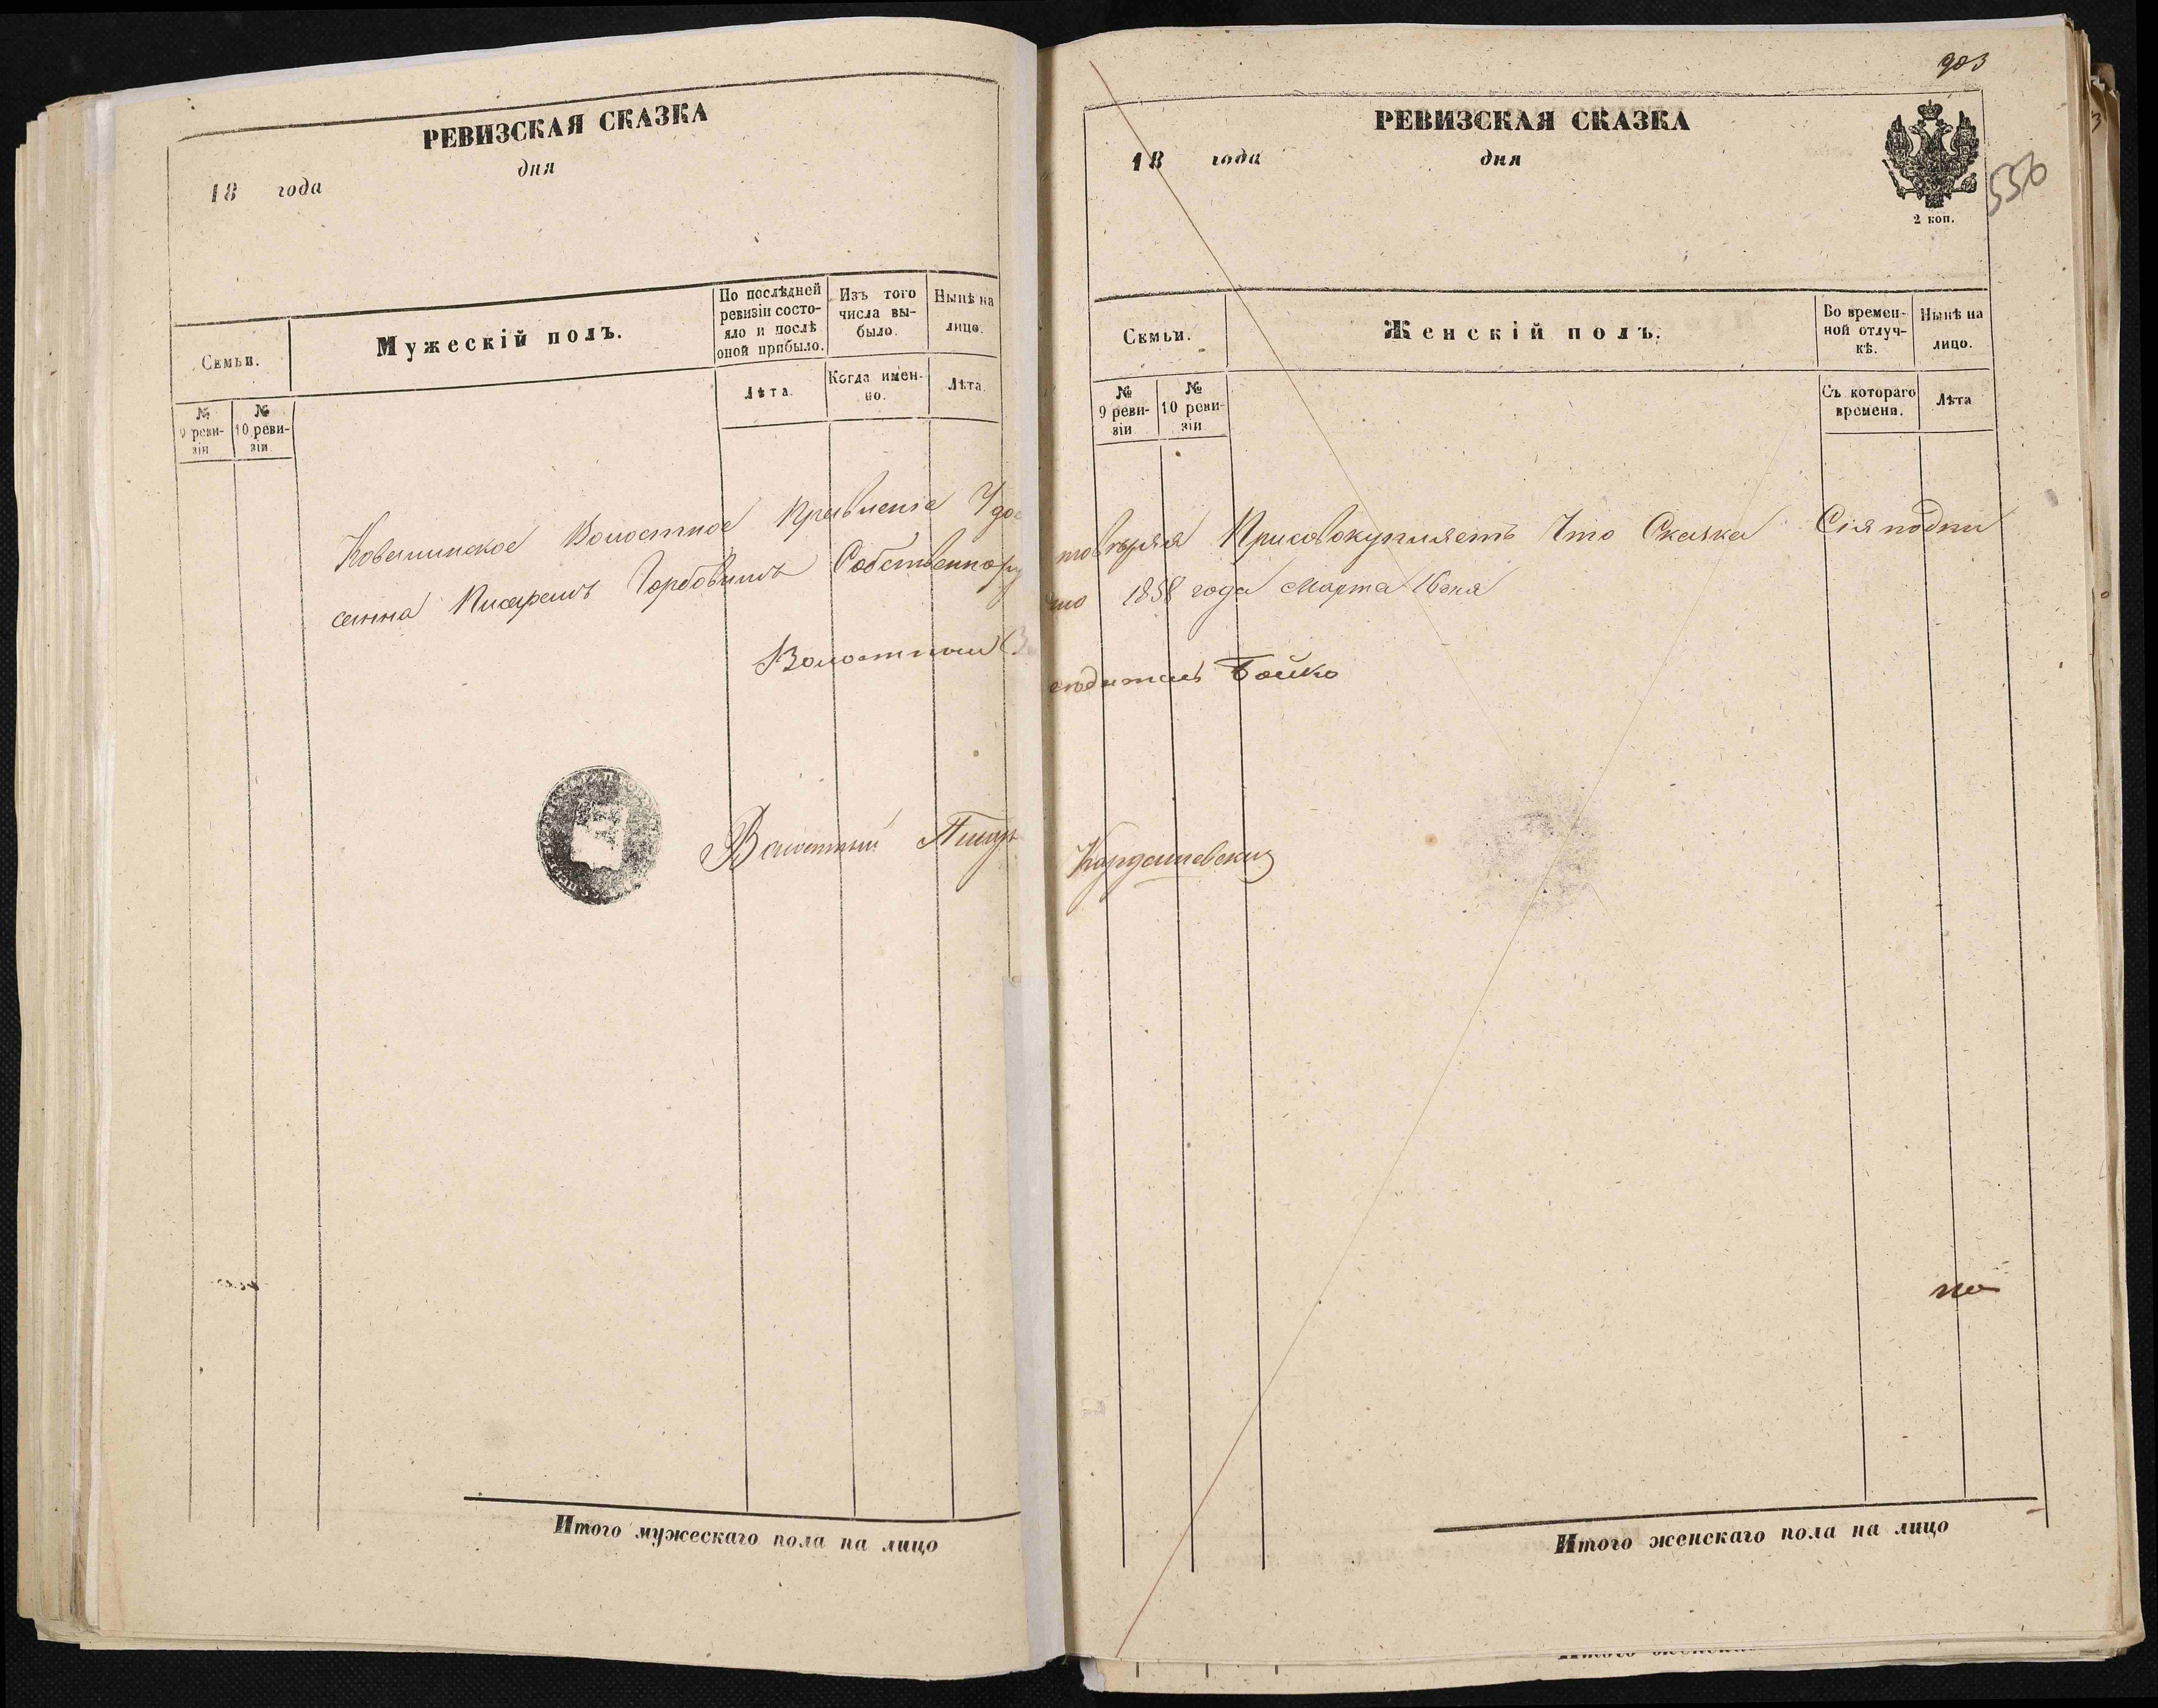 РЕВИЗСКАЯ СКАЗКА
18 года дня
Семьи.
Мужескій полъ.
По послѣдней ревизіи состояло и послѣ оной прибыло.
Изъ того числа выбыло.
Нынѣ на лицо.
№ 9 ревизіи
№ 10 ревизіи
Лѣта.
Когда именно.
Лѣта.
Волостное Правленіе Удо
санна Писаремъ Горбовымъ Собственнору
Волостный
Волостный Писарь
Итого мужескаго пола на лицо
903
РЕВИЗСКАЯ СКАЗКА
18 года дня
556
2 коп.
Семьи.
Женскій полъ.
Во временной отлучкѣ.
Нынѣ на лицо.
№ 9 ревизіи
№ 10 ревизіи
Съ котораго времени.
Лѣта
товѣряя Присовокупляетъ Что Сказка Сія подпи
но 1858 года Марта 16 дня
Бойко
Кардашевскій
по
Итого женскаго пола на лицо